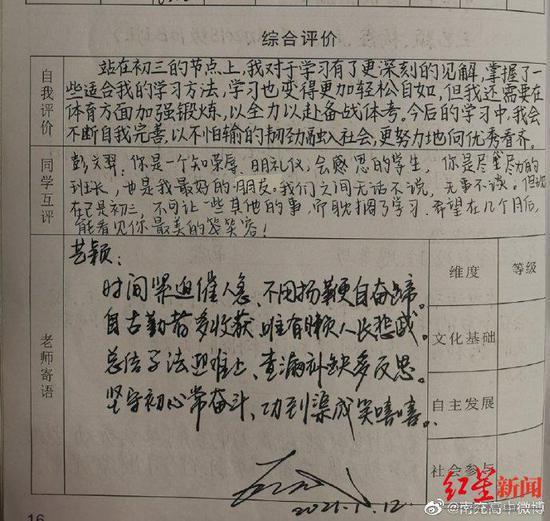 综合评价
自我评价
站在初三的节点上,我对于学习有了更深刻的见解,掌握了一
些适合我的学习方法,学习也变得更加轻松自如,但我还需要在
体育方面加强锻炼,以全力以赴备战体考。今后的学习中,我会
不断自我完善,以不怕输的韧劲融入社会,更努力地向优秀看齐。
同学互评
你是一个知荣辱、明礼仪,会感恩的学生,你是尽责尽力的
班长,也是我最好的朋友。我们之间无话不说,无事不谈。但现
在已是初三,不可让一些其他的事,而耽搁了学习,希望在几个月后,
能看见你最美的笑容!
老师寄语
艺颖:
时间紧迫催人急、不用扬鞭自奋蹄。
自古勤者多收获、唯有懒人长悲戚。
总结方法迎难上、查漏补缺多反思。
坚守初心常奋斗、功到渠成笑嘻嘻。
2021.1.12
维度 等级
文化基础
自主发展
社会参与
16
红星新闻
@南充高中微博